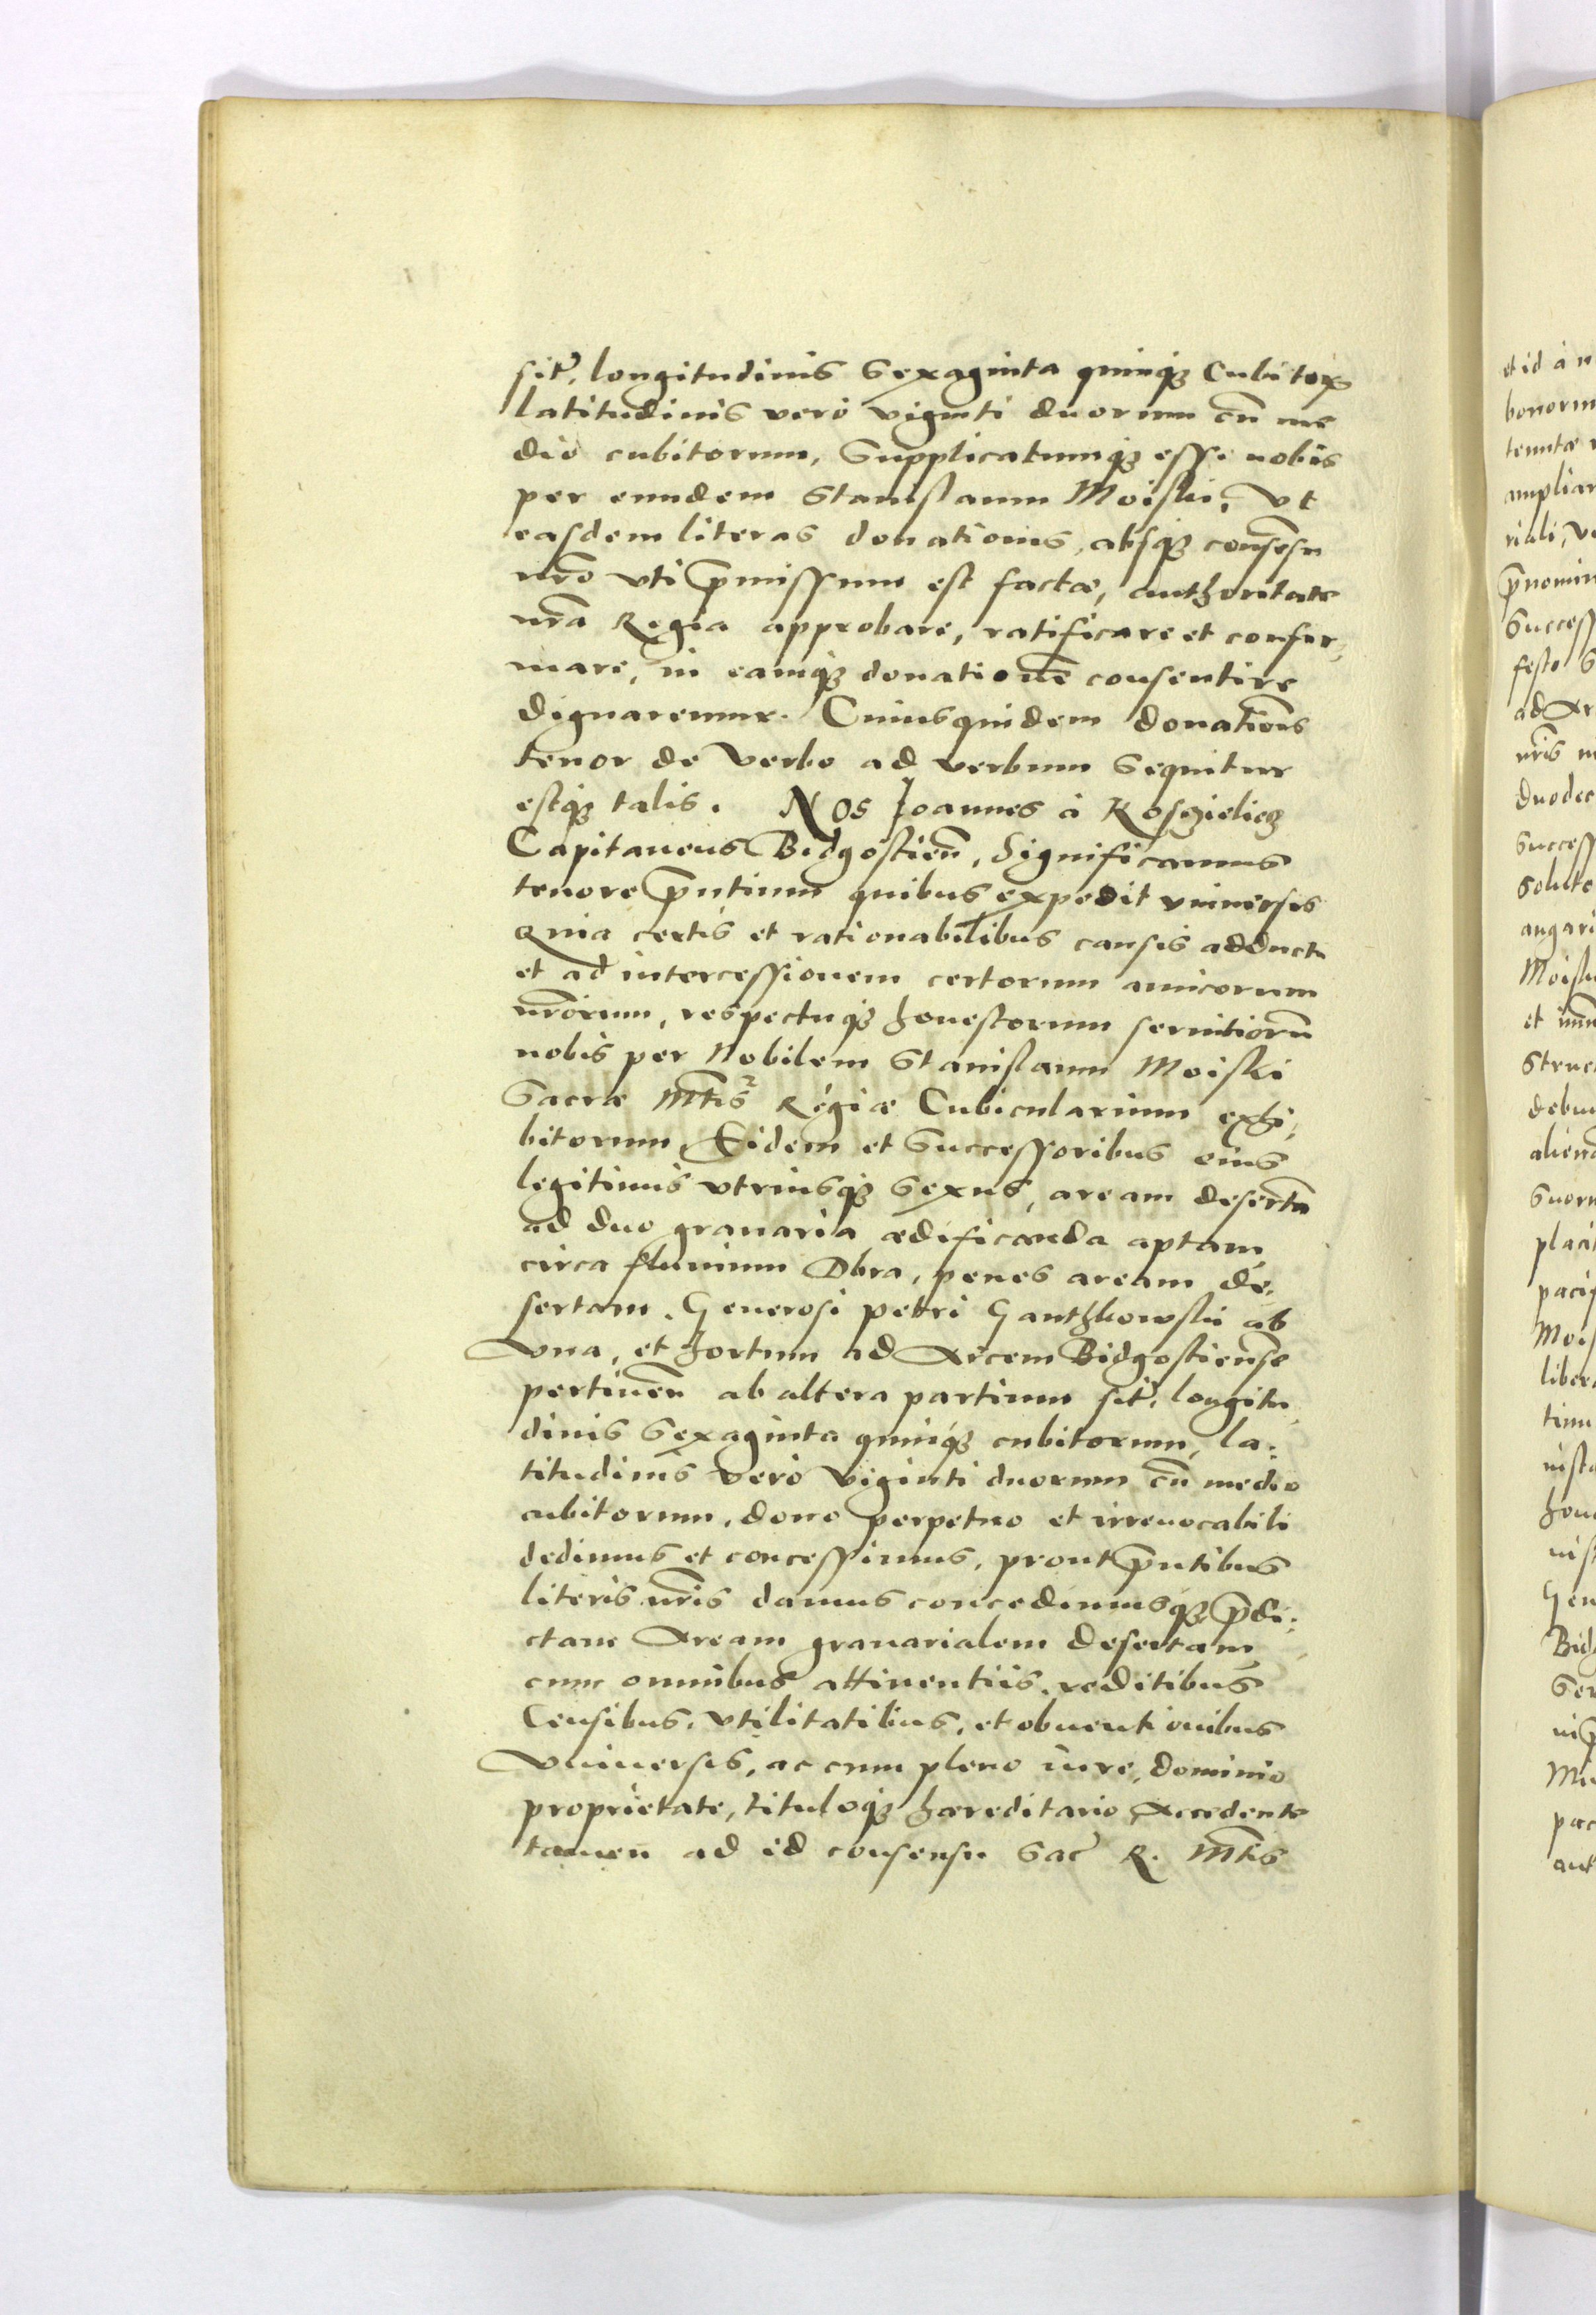 sit̃. longitudinis Sexaginta quinqꝫ Cubitoꝝ
latitudinis verò viginti duorum cũ me
dio cubitorum, Supplicatumqꝫ esse nobis
per eundem Stanislaum Moiski, vt
easdem literas donationis, absqꝫ consẽsu
nr̃o vti p̃missum est factæ, authoritate
nr̃a Regia approbare, ratificare et confir,
mare, in eamqꝫ donationẽ consentire
dignaremur. Cuius quidem donatiõis
tenor de verbo ad verbum Sequitur
estqꝫ talis. Nos Joannes à Kosczieliecz
Capitaneus Bidgostieñ, Significamus
tenore p̃ntium quibus expedit vniuersis
Quia certis et rationabilibus causis adducti
et ad intercessionem certorum amicorum
nr̃orum, respectuqꝫ honestorum seruitiorũ
nobis per Nobilem Stanislaum Moiski
Sacræ Mt̃is Regiæ Cubicularium exhi,
bitorum, Eidem et Successoribus eius
legitimis vtriusqꝫ Sexus, aream desertã
ad duo granaria ædificanda aptam
circa fluuium Dbra, penes aream de,
sertam. Generosi Petri Ganthkowski ab
vna, et hortum ad Arcem Bidgostiensẽ
pertineñ ab altera partium sit̃. longitu,
dinis Sexaginta quinqꝫ cubitorum, la,
titudinis verò viginti duorum cũ medio
cubitorum, dono perpetuo et irreuocabili
dedimus et concessimus, prout p̃ntibus
literis nr̃is damus concedimusqꝫ p̃di,
ctam Aream granarialem desertam
cum omnibus attinentiis. reditibus
Censibus. vtilitatibus, et obuentionibus
vniuersis, ac cum pleno iure, dominio
proprietate, tituloqꝫ hæreditario, Accedente
tamen ad id consensu Sac̃ R. Mt̃is
et id à n
bonorum
tenutæ
ampliar
riali, v
p̃nomin
Success
festo S
ad Ar
nr̃is
duodec
Success
Solut
angari
Moisk
et
Struc
debu
alien
Suor
placit
paci
Mois
libera
timi
nisto
hon
nis
Gen
Bidg
Ser

M
pac
aut